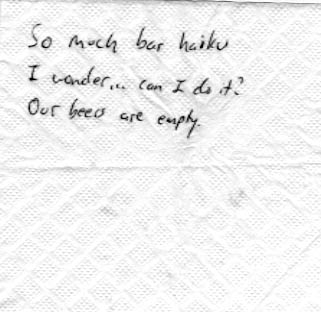 So much bar haiku
I wonder... can I do it?
Our beers are empty.